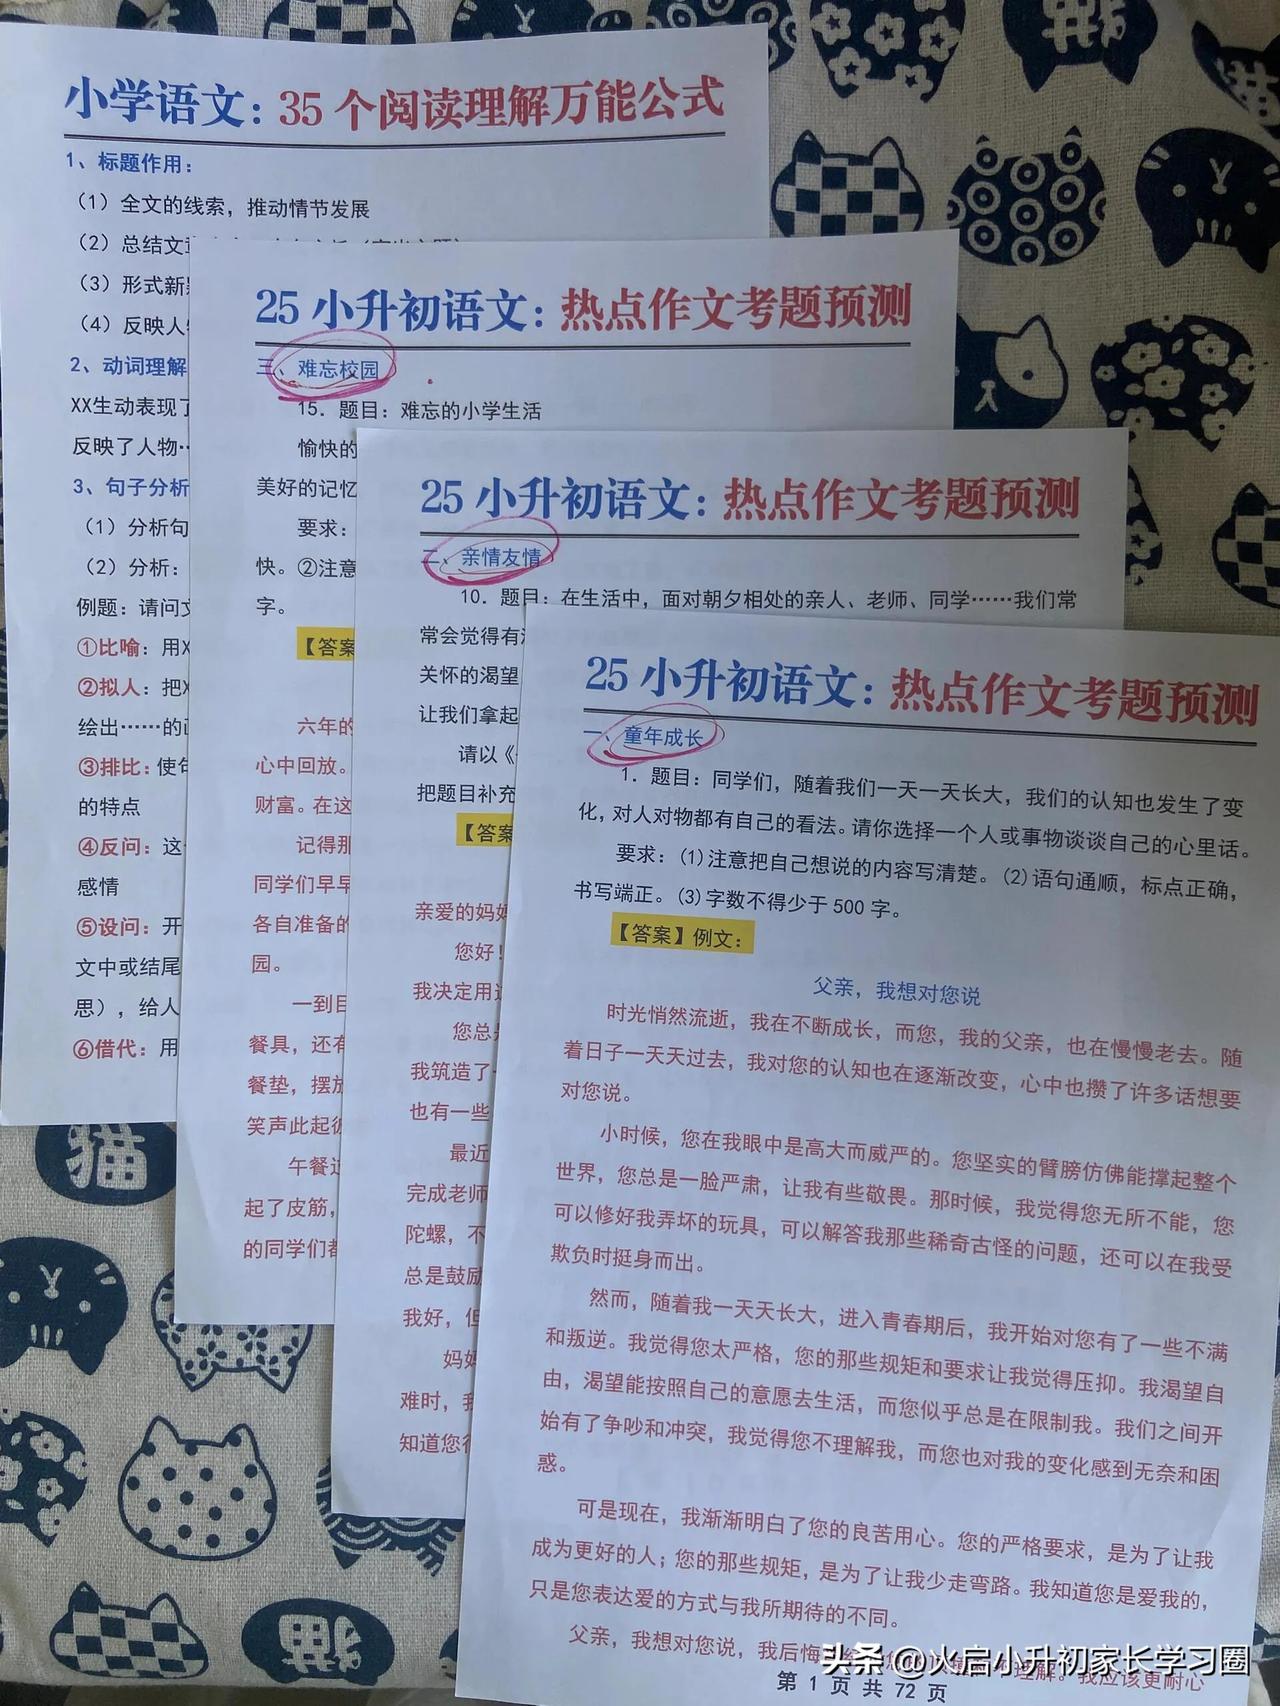 小学语文：35个阅读理解万能公式
1、标题作用：
（1）全文的线索，推动情节发展
（2）总结文章
（3）形式新
（4）反映人
2、动词理解
XX生动表现了
反映了人物…
3、句子分析
（1）分析句
（2）分析：
例题：请问文
①比喻：用X
②拟人：把X
绘出……的画
③排比：使句
的特点
④反问：这
感情
⑤设问：开
文中或结尾
思），给人
⑥借代：用
25小升初语文：热点作文考题预测
三、难忘校园
15．题目：难忘的小学生活
愉快的
美好的记忆
要求：
快。②注意
字。
【答案
六年的
心中回放。
财富。在这
记得那
同学们早早
各自准备的
园。
一到目
餐具，还有
餐垫，摆放
笑声此起彼
午餐过
起了皮筋，
的同学们都
25小升初语文：热点作文考题预测
二、亲情友情
10．题目：在生活中，面对朝夕相处的亲人、老师、同学……我们常
常会觉得有
关怀的渴望
让我们拿起
请以《
把题目补充
【答案
亲爱的妈妈
您好！
我决定用这
您总是
我筑造了一
也有一些
最近
完成老师
陀螺，不
总是鼓励
我好，但
妈妈
难时，我
知道您很
25小升初语文：热点作文考题预测
一、童年成长
1．题目：同学们，随着我们一天一天长大，我们的认知也发生了变
化，对人对物都有自己的看法。请你选择一个人或事物谈谈自己的心里话。
要求：(1)注意把自己想说的内容写清楚。(2)语句通顺，标点正确，
书写端正。(3)字数不得少于500字。
【答案】例文：
父亲，我想对您说
时光悄然流逝，我在不断成长，而您，我的父亲，也在慢慢老去。随
着日子一天天过去，我对您的认知也在逐渐改变，心中也攒了许多话想要
对您说。
小时候，您在我眼中是高大而威严的。您坚实的臂膀仿佛能撑起整个
世界，您总是一脸严肃，让我有些敬畏。那时候，我觉得您无所不能，您
可以修好我弄坏的玩具，可以解答我那些稀奇古怪的问题，还可以在我受
欺负时挺身而出。
然而，随着我一天天长大，进入青春期后，我开始对您有了一些不满
和叛逆。我觉得您太严格，您的那些规矩和要求让我觉得压抑。我渴望自
由，渴望能按照自己的意愿去生活，而您似乎总是在限制我。我们之间开
始有了争吵和冲突，我觉得您不理解我，而您也对我的变化感到无奈和困
惑。
可是现在，我渐渐明白了您的良苦用心。您的严格要求，是为了让我
成为更好的人；您的那些规矩，是为了让我少走弯路。我知道您是爱我的，
只是您表达爱的方式与我所期待的不同。
父亲，我想对您说，我后悔 理解。我应该更耐心
第 1 页 共 72 页
头条 @火启小升初家长学习圈
猫
猫
猫
猫